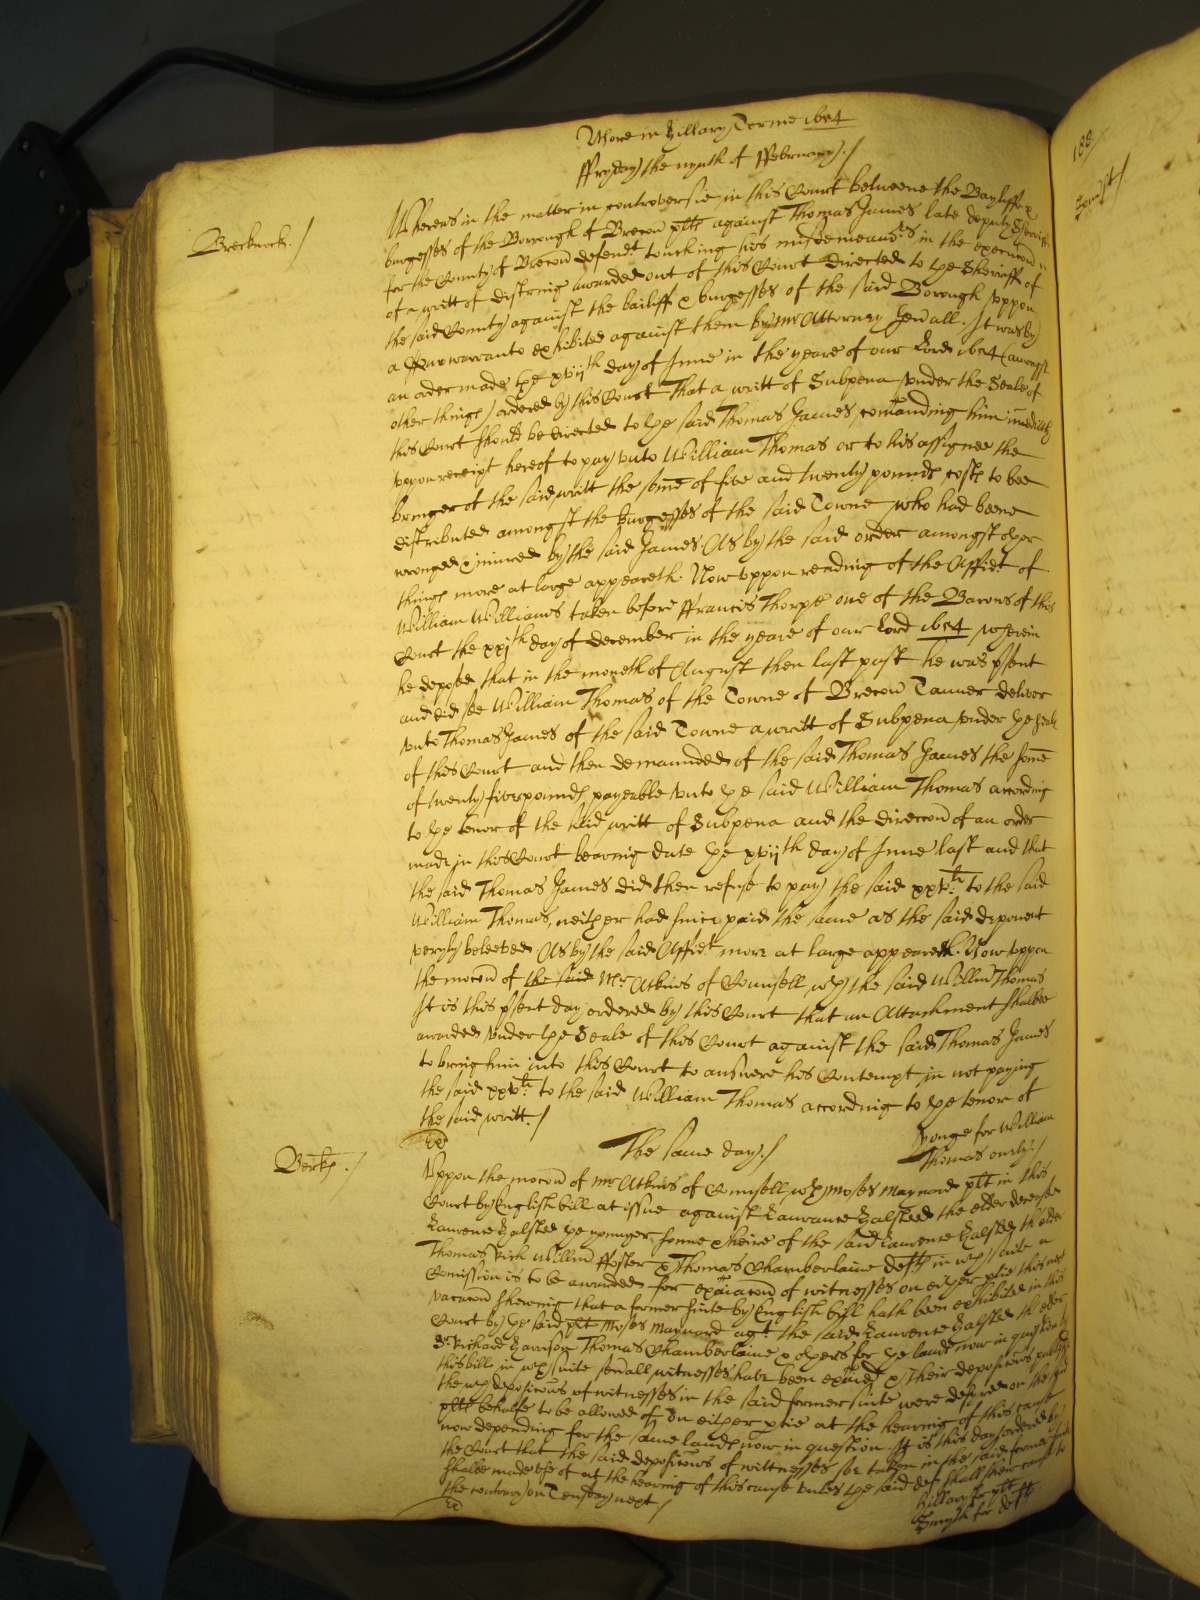 More in Hillary Terme 1654
ffryday the nynth of ffebruary./
Brecknock./
Whereas in the matter in controversie in this Court betweene the Bayliffe &
burgesses of the Borrough of Brecon plts against Thomas James late deputy Sheriffe
for the County of Brecon defendt touching his misdemeanors in the execucon
of a writt of distring awarded out of this Court directed to the Sheriff of
the said County against the bailiff & burgesses of the said Borough vppon
a Quo warranto exhibited against them by mr Attorney Genall. It was by
an order made the xvijth day of June in the yeare of our Lord 1654 (amongst
other things) ordered by this Court That a writt of Subpena vnder the Seale of
this Court should be directed to the said Thomas James comanding him imediatly
vppon receipt hereof to pay vnto William Thomas or to his assignee the
bringer of the said writt the some of five and twenty pounds costs to bee
distributed amongst the burgesses of the said Towne who had beene
wronged & iniured by the said James. As by the said order amongst other
things more at large appeareth. Now vppon reading of the Affidt of
William Williams taken before ffrancis Thorpe one of the Barons of this
Court the xxjth day of december in the yeare of our Lord 1654 wherein
he deposed that in the moneth of August then last past he was psent
and did see William Thomas of the Towne of Brecon Tanner deliver
vnto Thomas James of the said Towne a writt of Subpena vnder the seale
of this Court and then demaunded of the said Thomas James the some
of twenty five pounds payeable vnto the said William Thomas according
to the tenor of the said writt of Subpena and the direccon of an order
made in this Court bearing date the xvijth day of June last and that
the said Thomas James did then refuse to pay the said xxvli to the said
William Thomas, neither had since paid the same as the said deponent
veryly beleeved As by the said Affidt more at large appeareth. Now vppon
the mocon of the said Mr Atkins of Counsell wth the said Willm Thomas
It is this psent day ordered by this Court that an Attachment shalbee
awarded vnder the Seale of this Court against the said Thomas James
to bring him into this Court to answere his Contempt in not paying
the said xxvli to the said William Thomas according to the tenor of
the said writt./
Yonge for William
Thomas only./
The same day./
Berks./
Vppon the mocon of mr Atkins of Counsell wth Moses Maynard plt in this
Court by English bill at issue against Laurance Halsted the elder deceased
Laurence Halsted the younger sonne & heire of the said Laurence Halsted th elder
Thomas Willm ffoster & Thomas Chamberlaine defts in wch suite a
Comission is to be awarded for exaiacon of witnesses on either ptie this next
vacacon shewing that a former suite by English bill hath been exhibited in this
Court by the said plt Moses Maynard agt the said Laurence Halsted th elder
Sr Richard Harrison Thomas Chamberlaine & others for the lands now in question by
this bill in wch suite seuall witnesses have been exaied & their deposicons published
the wch deposicons of witnesses in the said former suite were desired on the said
plts behalfe to be allowed of on either ptie at the hearing of this cause
now depending for the same lands now in question. It is this day ordered by
the Court that the said deposicons of wittnesses soe taken in the said former suite
shalbe made vse of at the hearing of this cause vnles the said deft shall shew cause to
the contrary on Tuesday next./
for plt
Smyth for defts